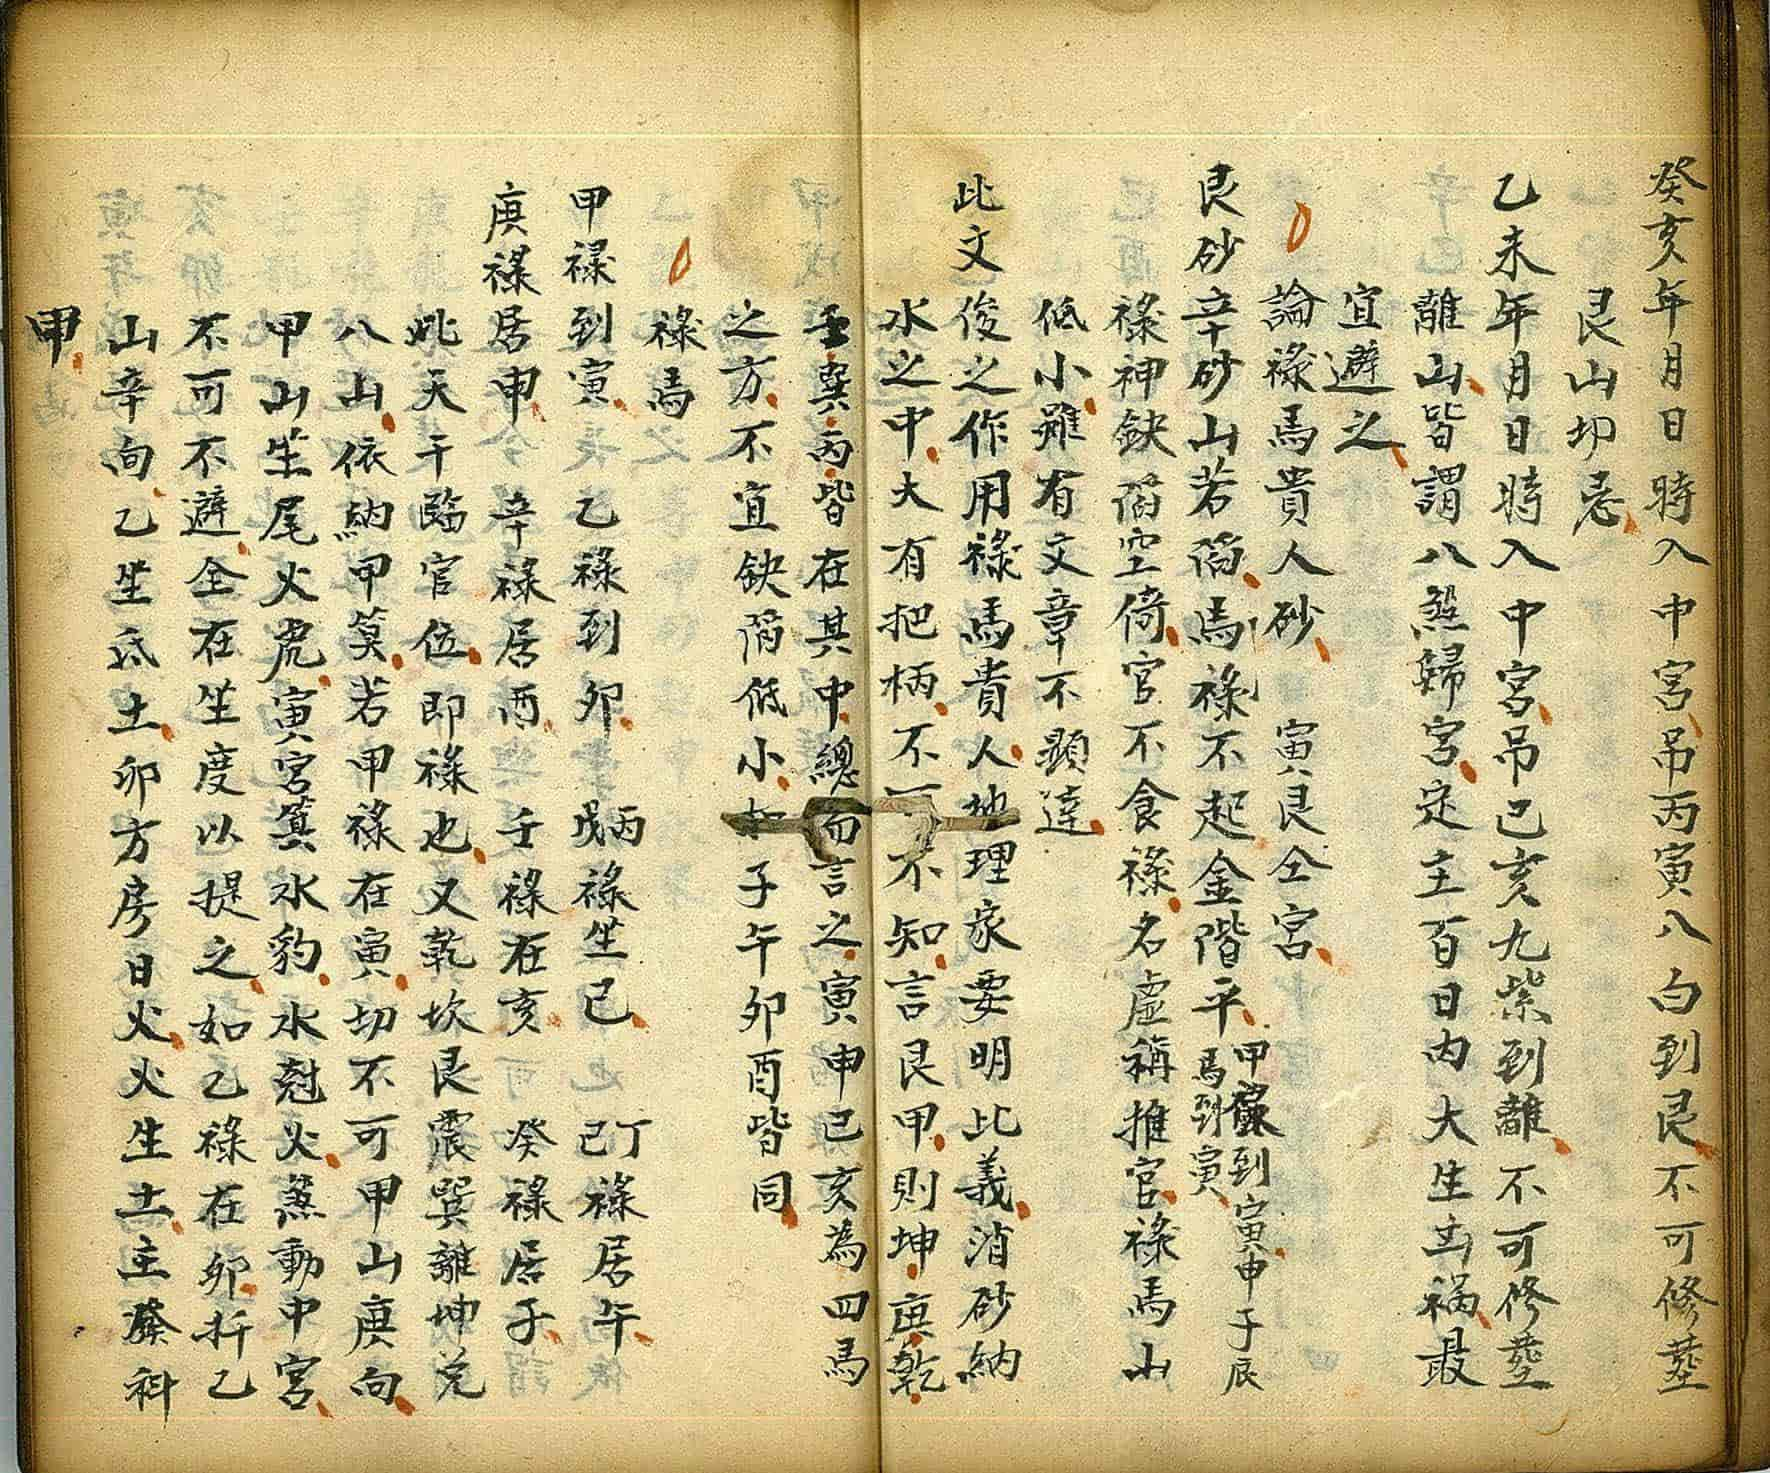 癸亥年月日時入中宮吊丙寅八白到艮不可修塟
艮山切忌
乙未年月日時入中宮吊己亥九紫到離不可修塟
離山皆謂八煞歸宮定主百日內大生出禍最
宜避之
論祿馬貴人砂 寅艮仝宮
艮砂辛砂山若陷馬祿不起金階平 甲祿到寅申子辰馬到寅
祿神缺陷空倚官不食祿名虛稱推官祿馬山
低小雖有文章不顯達
此文俊之作用祿馬貴人地理家要明比義消砂納
水之中大有把柄不可不知言艮甲則坤庚乾
壬巽丙皆在其中總而言之寅申巳亥為四馬
之方不宜缺陷低小 子午卯酉皆同
祿馬
甲祿到寅 乙祿到卯 丙戊祿坐巳 丁己祿居午
庚祿居申 辛祿居酉 壬祿在亥 癸祿居子
此天干臨官位即祿也又乾坎艮震巽離坤兌
八山依納甲算若甲祿在寅切不可甲山庚向
甲山坐尾火虎寅宮箕水豹水尅火煞動中宮
不可不避全在坐度以提之如乙祿在卯扦乙
山辛向乙坐氐土卯方房日火火生土主發科
甲